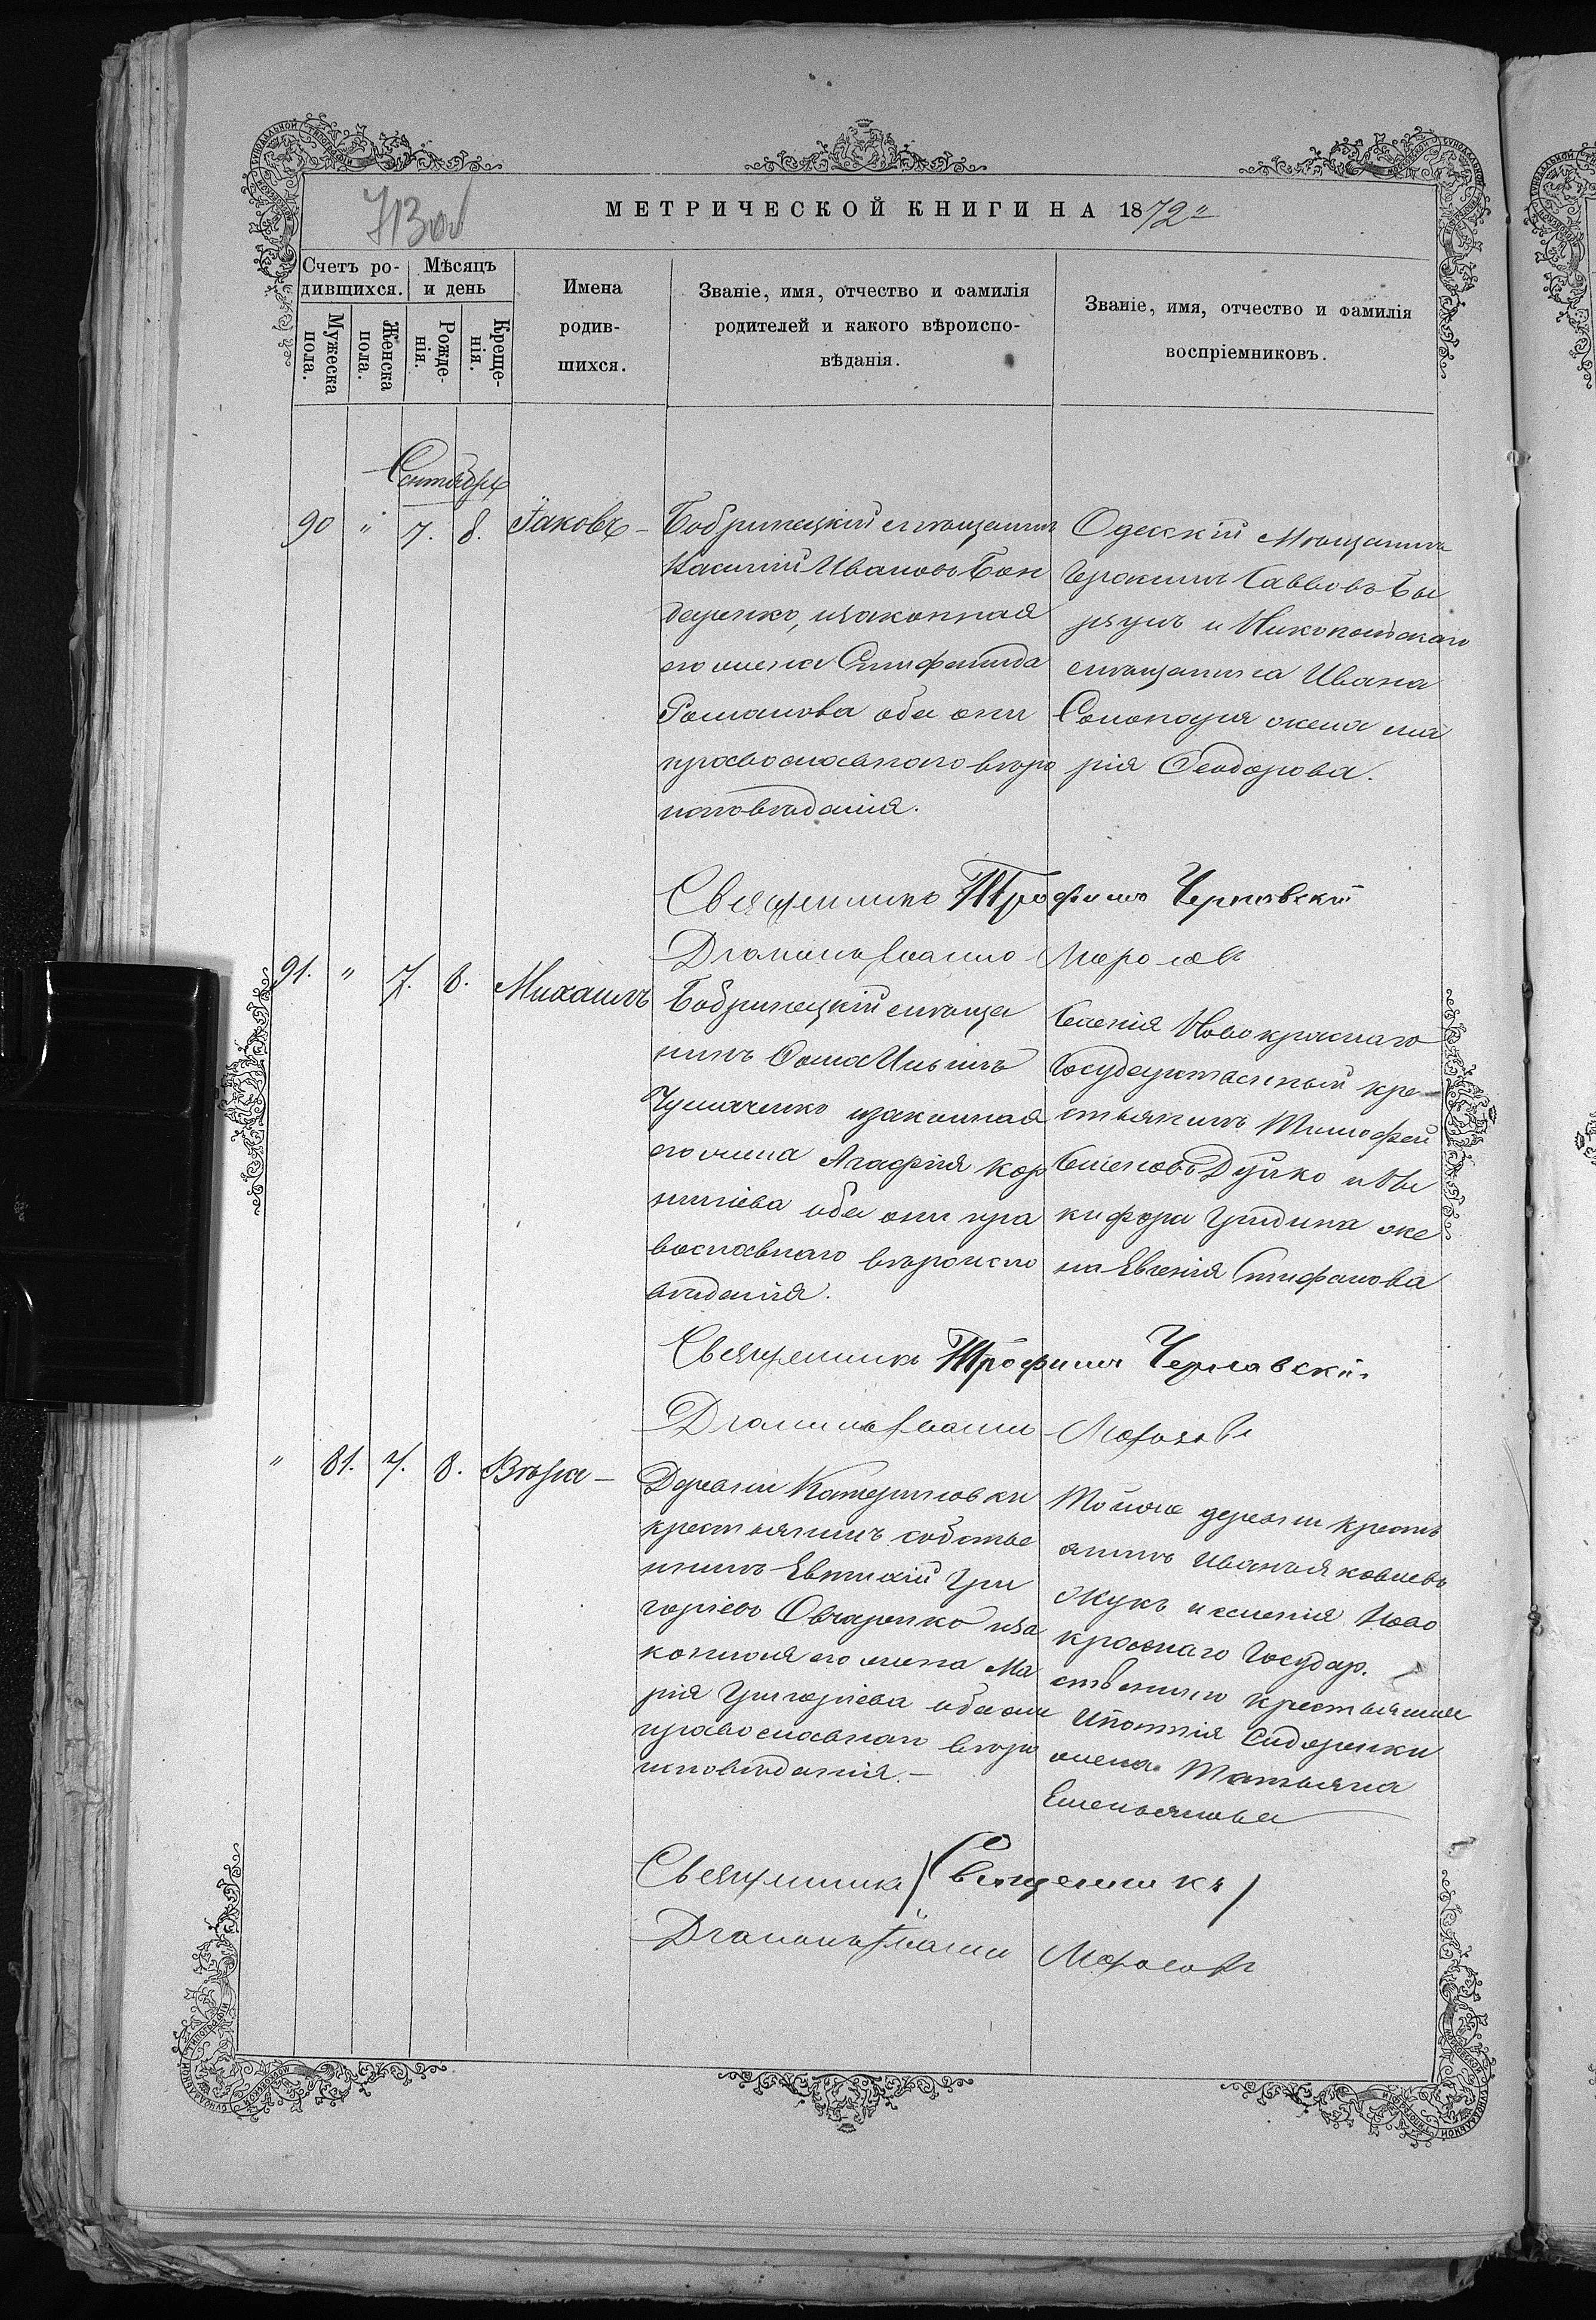 713об
МЕТРИЧЕСКОЙ КНИГИ НА 1872
Счетъ ро-
дившихся.
Мѣсяцъ
и день
Мужеска
пола.
Женска
пола.
Рожде-
нія.
Креще-
нія.
Имена
родив-
шихся.
Званіе, имя, отчество и фамилія
родителей и какого вѣроиспо-
вѣданія.
Званіе, имя, отчество и фамилія
воспріемниковъ.
Сентябрь
90 " 7. 8. Іаковъ -
Бобринецкій мѣщанинъ
Касіянъ Ивановъ Бон
даренко, и законная
его жена Епифанида
Романова оба они
православнаго вѣро
исповѣданія.
Одесскій мѣщанинъ
Герасимъ Саввовъ
и Никопольскаго
мѣщанина Ивана
жена Ма
рія Ѳеодорова.
Священникъ Трофимъ Чернявскій
Діаконъ Іоаннъ Морозовъ
91. " 7. 8. Михаилъ
Бобринецкій мѣща
нинъ Ѳома Ильинъ
Чумаченко и законная
его жена Агафія Кор
ниліева оба они пра
вославнаго вѣроиспо
вѣданія.
Селенія Новокраснаго
Государственный кре
стьянинъ Тимофей
Семеновъ Дуйко и Ни
кифора Гридина же
на Евгенія Стефанова
Священникъ Трофимъ Чернявскій.
Діаконъ Іоаннъ Морозовъ
" 81. 7. 8. Вѣра -
Деревни Катериновки
крестьянинъ собстве
нникъ Евтихій Гри
горіевъ Овчаренко и за
конная его жена Ма
рія Григоріева оба они
православнаго вѣро
исповѣданія. -
Той же деревни кресть
янинъ Иванъ Яковлевъ
Жукъ и селенія Ново
краснаго Государ.
ственнаго крестьянина
Игнатія Сидоренки
жена Татьяна
Емельянова
Священникъ (Священникъ)
Діаконъ Іоаннъ Морозовъ